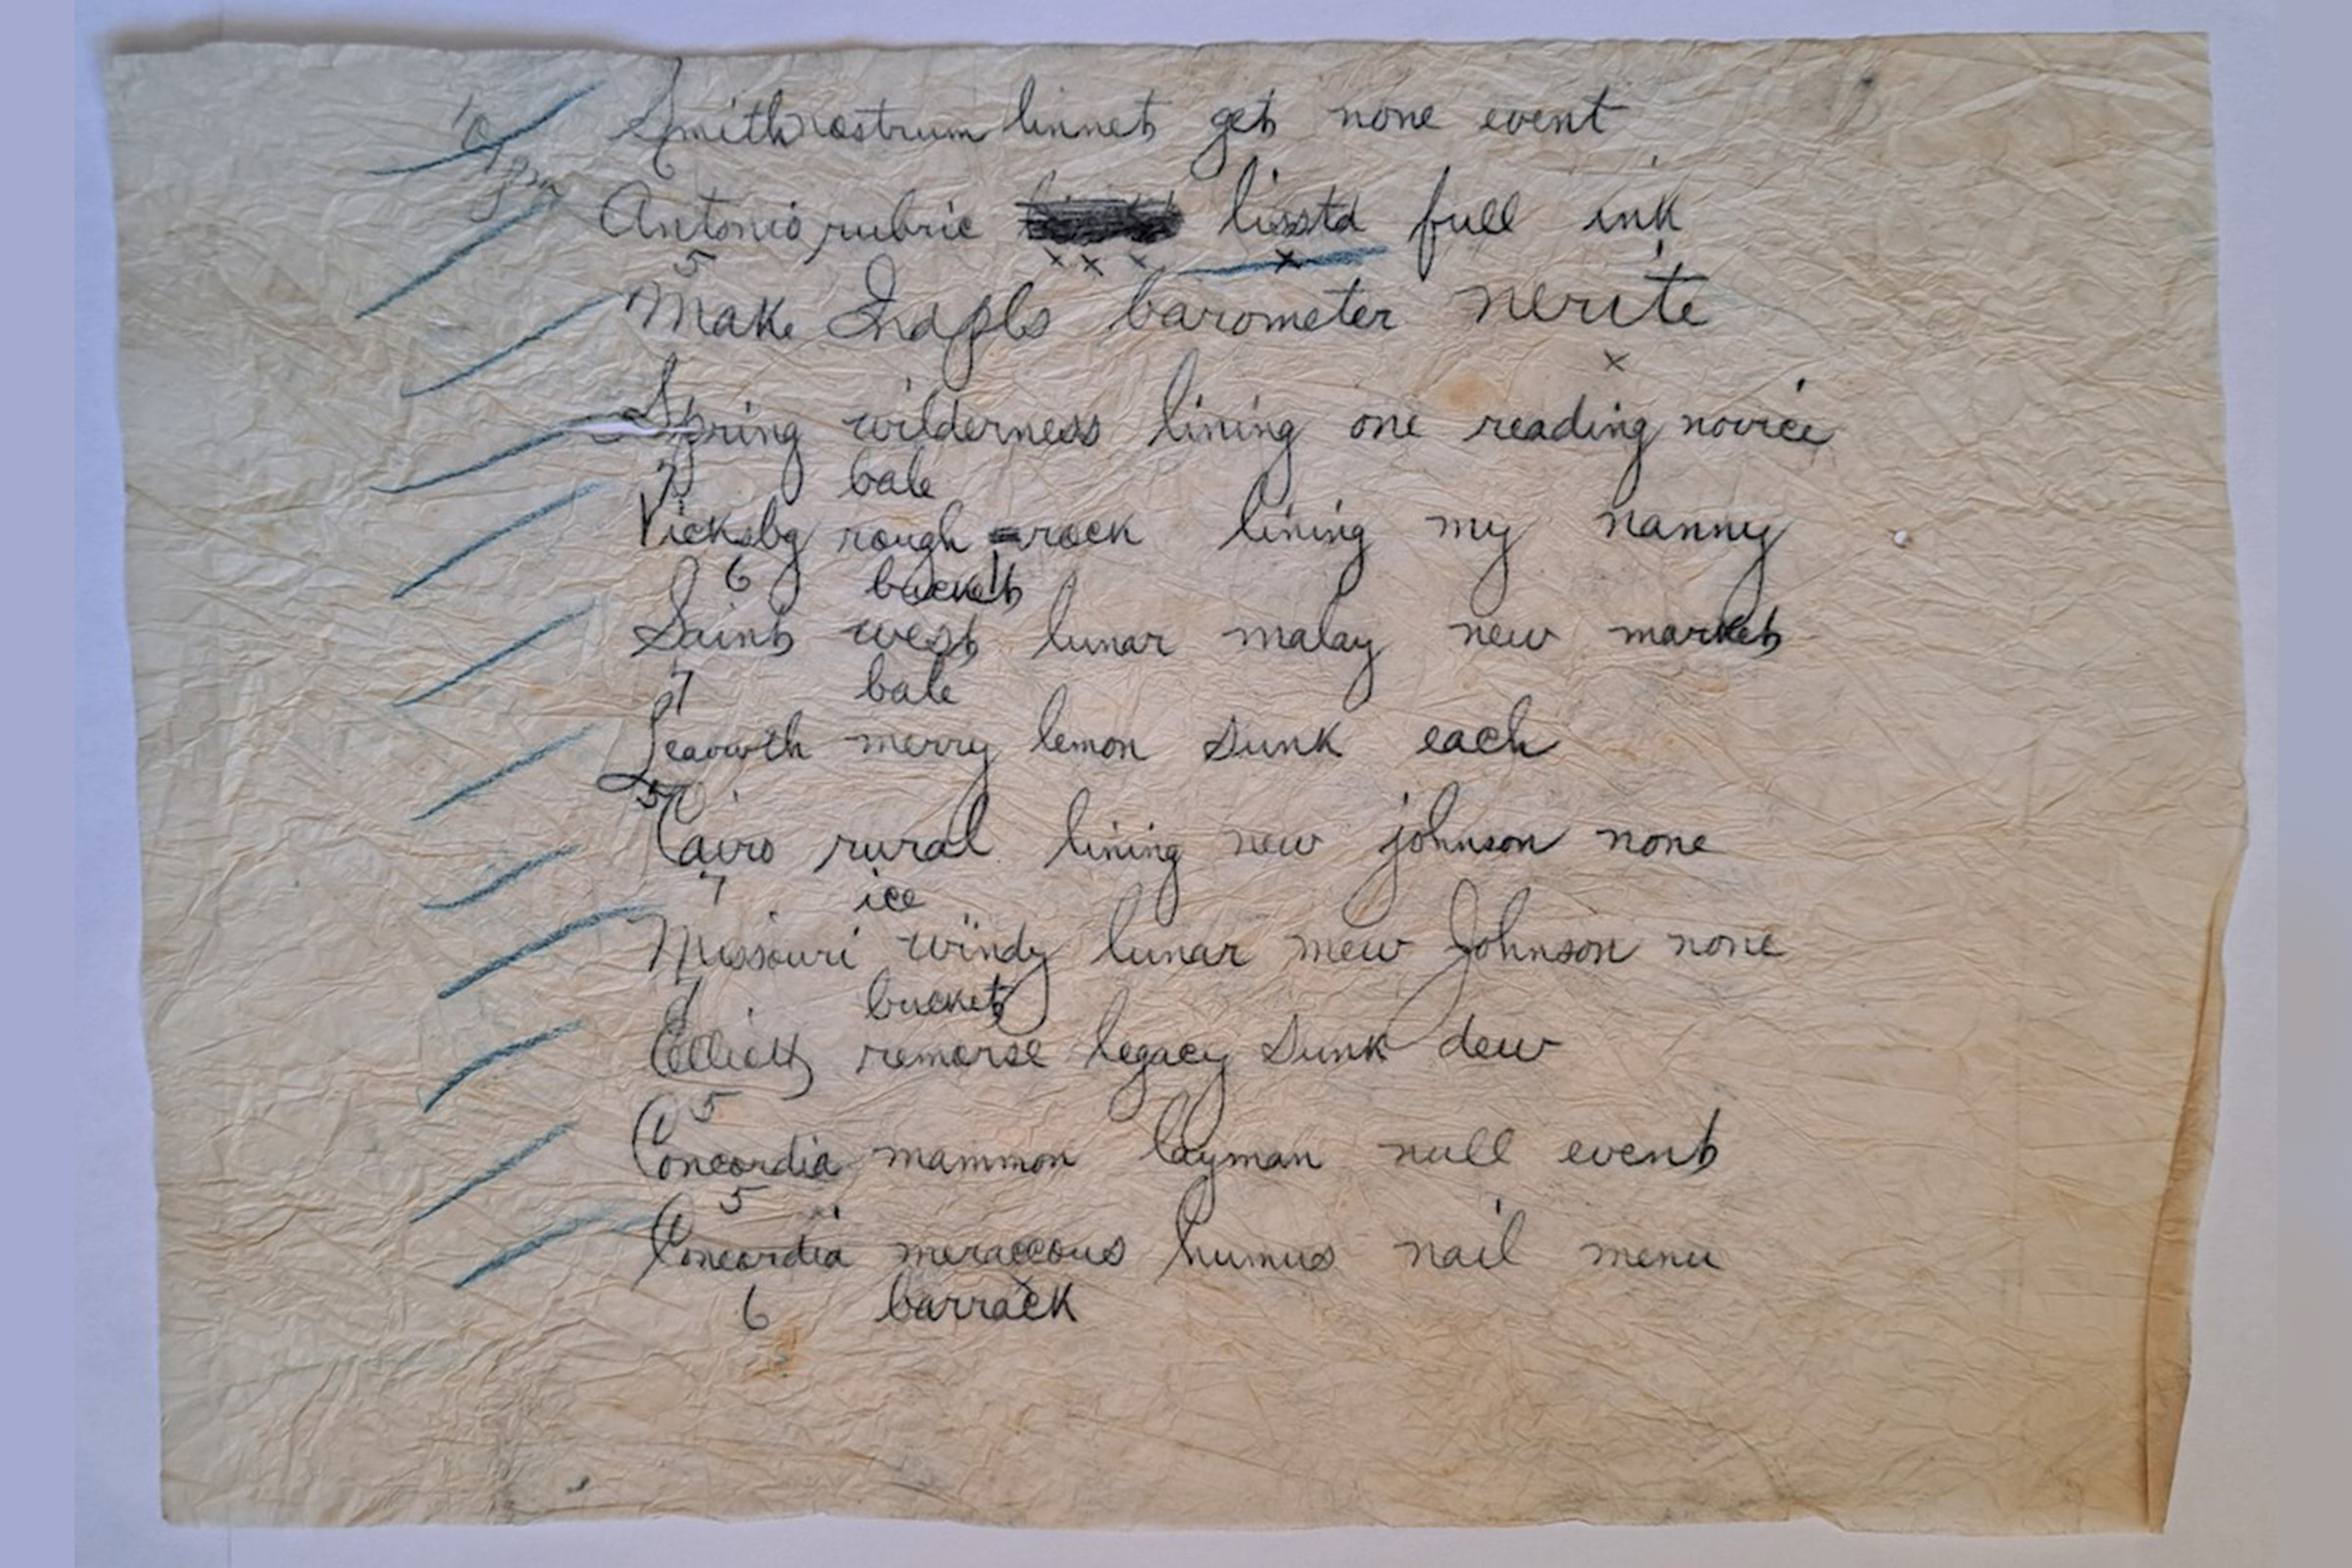 10 pm
Smith nostrum linnet get none event
Antonio rubric lisstd full ink
5
Make Indpls barometer nerite
Spring wilderness lining one reading novice
7 bale
Vicksbg rough rock lining my nanny
6 bucket
Saint west lunar malay new market
7 bale
Leavwth merry lemon sunk each
5
Cairo rural lining new johnson none
7 ice
Missouri windy lunar mew Johnson none
7 bucket
Elliott remorse legacy sunk dew
5
Concordia mammon layman null event
5
Concordia meraccous humus nail menu
6 barrack